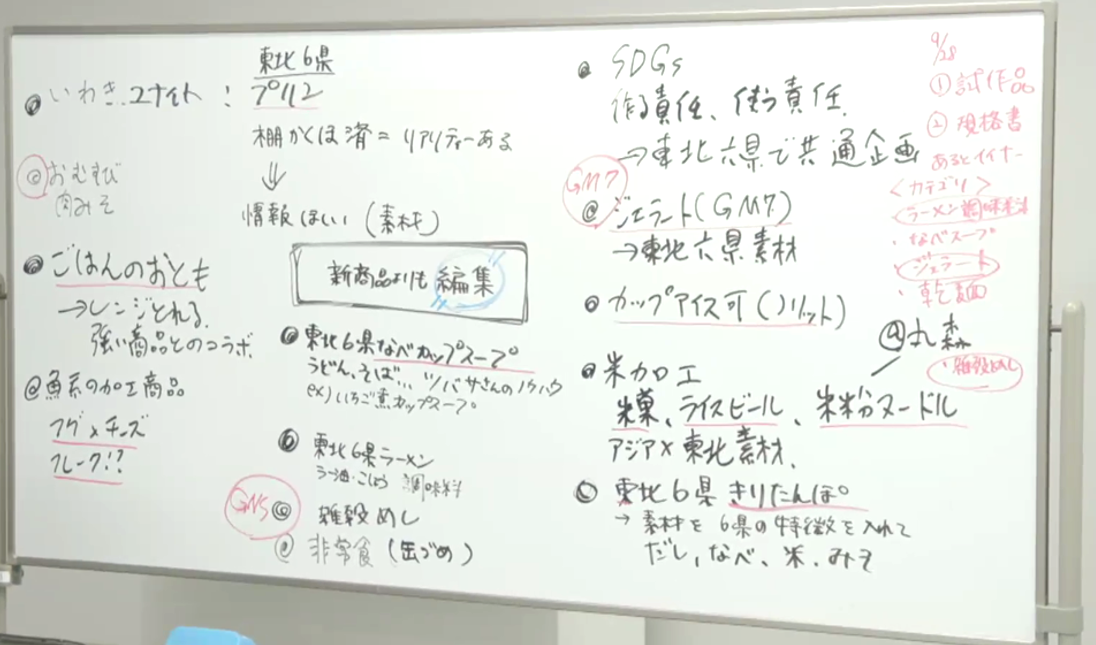 いわきユナイト:
東北6県
プリン
棚がくほ済=リアリティーある
⇓
情報ほしい(素材)
新商品よりも編集
おむすび
肉みそ
ごはんのおとも
→レンジとれる
強い商品とのコラボ
@魚系の加工商品
フグ×チーズ
フレーク!?
東北6県なべカップスープ
うどん、そば... ツバサさんのノウハウ
ex)いちご煮カップスープ
東北6県ラーメン
ラー油・こしょう 調味料
GM5
雑穀めし
非常食(缶づめ)
SDGs
作る責任、使う責任
→東北六県で共通企画
GM7
@ジェラート(GM7)
→東北六県素材
カップアイス可(ソリット)
米加工
米菓、ライスビール、米粉ヌードル
アジア×東北素材、
東北6県きりたんぽ
→素材を6県の特徴を入れて
だし、なべ、米、みそ
9/28
①試作品
②規格書
あるとイイナー
<カテゴリ>
・ラーメン調味料
・なべスープ
・ジェラート
・乾麺
丸森
・雑穀めし